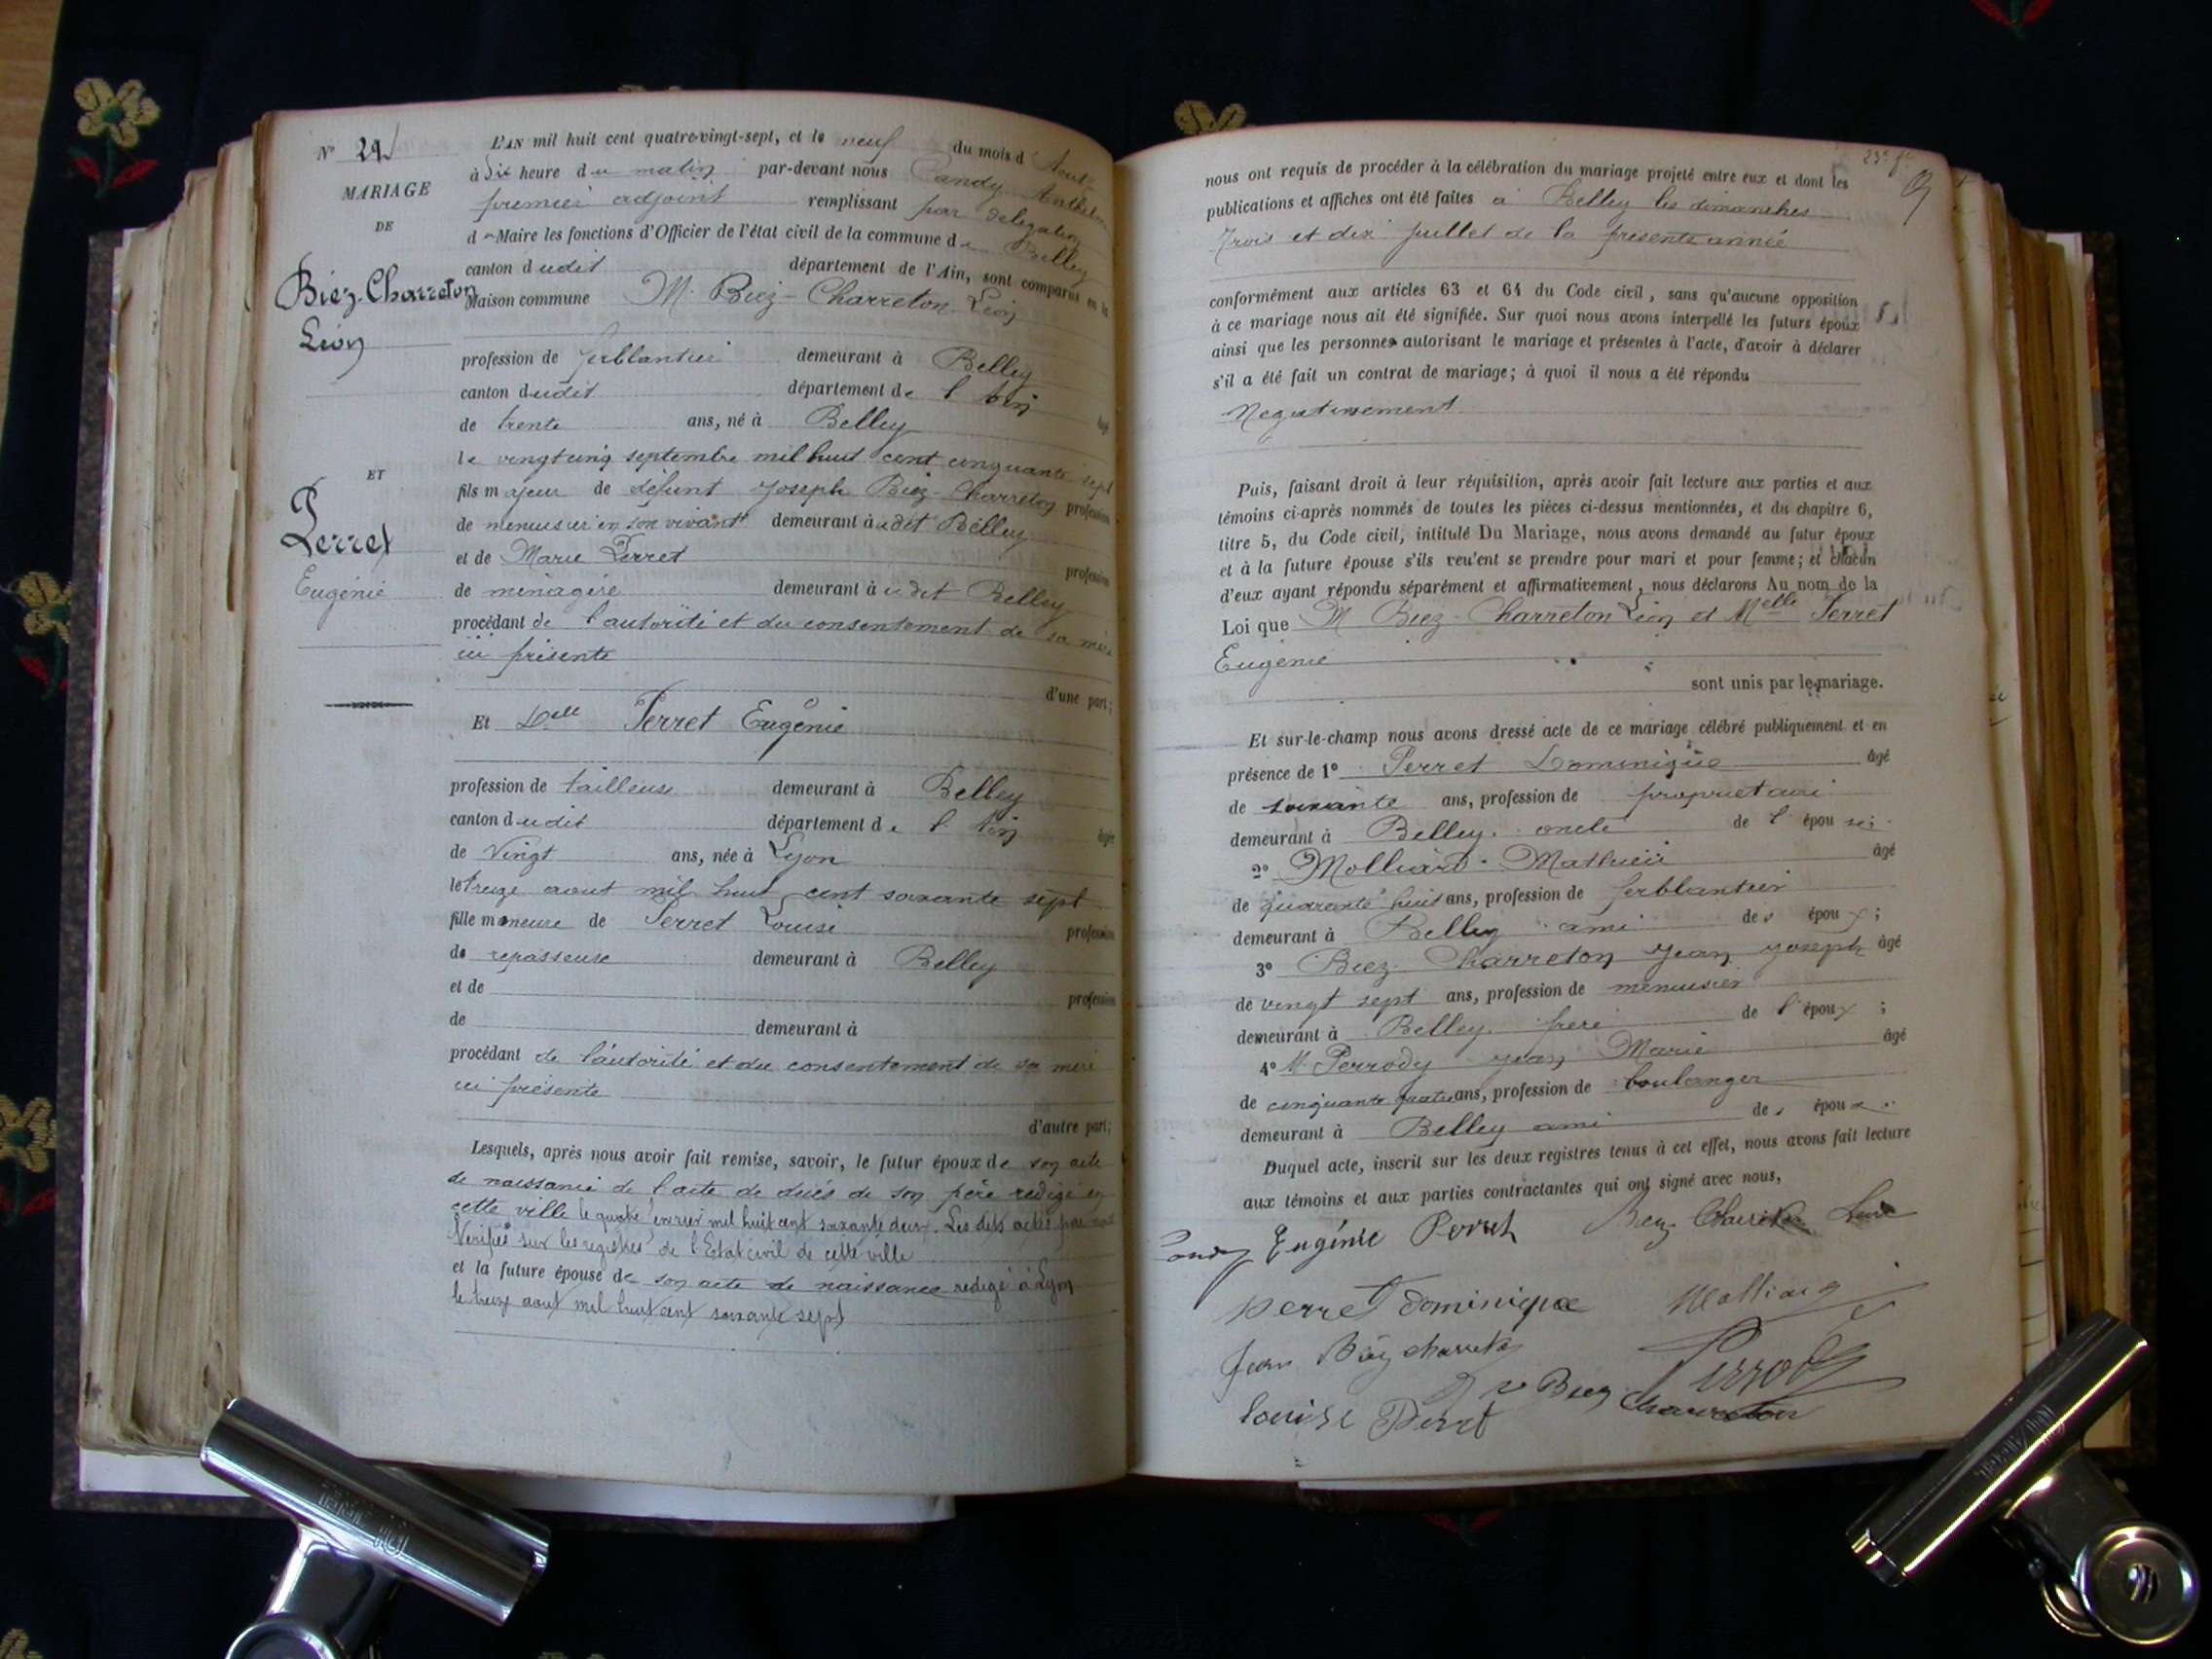 N° 29
L'AN mil huit cent quatre-vingt-sept, et le neuf du mois d'Aout
à Dix heure du matin par-devant nous Candy Anthelme
premier adjoint remplissant par delegation
d Maire les fonctions d'Officier de l'état civil de la commune de Belley
canton dudit département de l'Ain, sont comparus en la
Maison commune M. Biez-Charreton Léon
MARIAGE
DE
Biez-Charreton
Léon
ET
Perret
Eugénie
profession de ferblantier demeurant à Belley
canton dudit département de l'Ain âgé
de trente ans, né à Belley
le vingt cinq septembre mil huit cent cinquante sept
fils majeur de défunt Joseph Biez-Charreton profession
de menuisier en son vivant demeurant à udit Belley
et de Marie Perret profession
de ménagère demeurant à udit Belley
procédant de l'autorité et du consentement de sa mère
ici présente
d'une part;
Et Delle Perret Eugénie
profession de tailleuse demeurant à Belley
canton dudit département de l'Ain âgée
de Vingt ans, née à Lyon
le treize aout mil huit cent soixante sept
fille mineure de Perret Louise profession
de repasseuse demeurant à Belley
et de profession
de demeurant à
procédant de l'autorité et du consentement de sa mère
ici présente
d'autre part;
Lesquels, après nous avoir fait remise, savoir, le futur époux de son acte
de naissance de l'acte de décès de son père redigé en
cette ville le quatre mil huit cent soixante deux. Les dits actes par nous
Verifiés sur les registres de l'Etat civil de cette ville
et la future épouse de son acte de naissance redigé à Lyon
le treize aout mil huit cent soixante sept
23e f
nous ont requis de procéder à la célébration du mariage projeté entre eux et dont les
publications et affiches ont été faites à Belley les dimanches
Trois et dix juillet de la presente année
conformément aux articles 63 et 64 du Code civil, sans qu'aucune opposition
à ce mariage nous ait été signifiée. Sur quoi nous avons interpellé les futurs époux
ainsi que les personnes autorisant le mariage et présentes à l'acte, d'avoir à déclarer
s'il a été fait un contrat de mariage; à quoi il nous a été répondu
Negativement
Puis, faisant droit à leur réquisition, après avoir fait lecture aux parties et aux
témoins ci-après nommés de toutes les pièces ci-dessus mentionnées, et du chapitre 6,
titre 5, du Code civil, intitulé Du Mariage, nous avons demandé au futur époux
et à la future épouse s'ils veu'ent se prendre pour mari et pour femme; et chacun
d'eux ayant répondu séparément et affirmativement, nous déclarons Au nom de la
Loi que M Biez-Charreton Léon et Melle Perret
Eugénie
sont unis par le mariage.
Et sur-le-champ nous avons dressé acte de ce mariage célébré publiquement et en
présence de 1° Perret Dominique âgé
de soixante ans, profession de propriétaire
demeurant à Belley. oncle de l'épouse
2° Molliard Mathieu âgé
de quarante huit ans, profession de ferblantier
demeurant à Belley ami des époux;
3° Biez-Charreton Jean Joseph âgé
de vingt sept ans, profession de menuisier
demeurant à Belley. frère de l'époux;
4° M. Perrody Jean Marie âgé
de cinquante quatre ans, profession de boulanger
demeurant à Belley ami des époux
Duquel acte, inscrit sur les deux registres tenus à cet effet, nous avons fait lecture
aux témoins et aux parties contractantes qui ont signé avec nous,
Candy Eugénie Perret Biez Charreton Léon
perret dominique Molliard
Jean Biez charreton Perrody
Louise Perret ve Biez Charreton